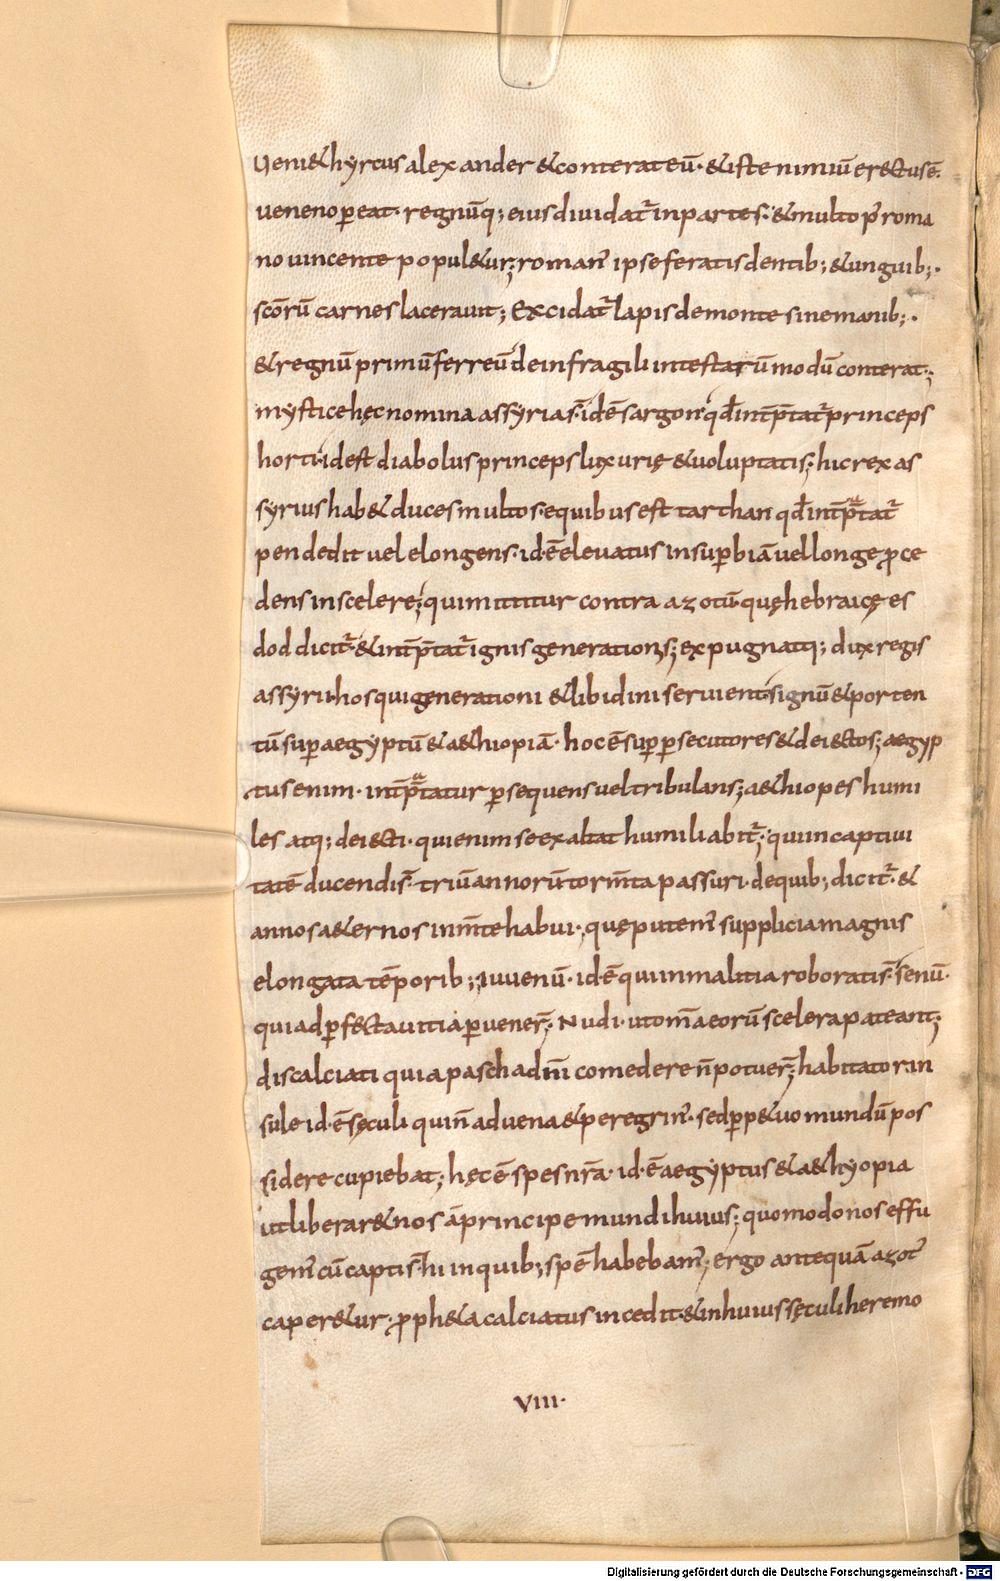 Ueni&hyrcus alexander &conterateū· &iste nimiū er&tusē·
ueneno ꝑeat· regnūq; eius diuidat᷑ inpartes· &multo p᷒ roma
no uincente popul&ur; roman᷒ ipse feratis dentib; &unguib;·
scōrū carnes lacerauit; Excidat᷑ lapis demonte sinemanib;·
&regnū primū ferreū deinfragili intestarū modū conterat;
mystice hęc nomina assyrias· idē sargon· qđ int̄p̄tat᷑ princeps
horti· idest diabolus princeps luxurię &uoluptatis; hic rex as
syrius hab& duces multos· equibus est tarthan qđ int̄p̄tat᷑
pendedit uel elongens· id·ē eleuatus insuꝑbiā uel longe ꝓce
dens inscelere; qui mittitur contra azotū· quę hebraicę es
dod dicit᷑· &int̄p̄tat᷑ ignis generationis; expugnatq; dux regis
assyri· hos qui generationi &libidini seruient· signū &porten
tū suꝑ aegyptū &a&hiopiā· hoc ē suꝑ ꝑsecutores &dei&tos; aegyp
tus enim· int̄p̄tatur ꝑsequens uel tribulans; a&hiopes humi
les atq; dei&ti· qui enim se exaltat humiliabit᷑; qui incaptiui
tatē ducendi s̄· triū annorū torm̄ta passuri· dequib; dicit᷑· &
annos a&ernos inm̄te habui· quę putem᷒ supplicia magnis
elongata tēporib; iuuenū· id·ē qui inmalitia roborati s̄· senū·
qui ad ꝑf&ta uitia ꝑuener̄· Nudi· ut om̄a eorū scelera pateant;
discalciati quia pascha dn̄i comedere n̄ potuer̄; habitator in
sule id·ē sęculi qui n̄ aduena &peregrin᷒· sed ꝑp&uo mundū pos
sidere cupiebat; hęc ē spes nr̄a· id·ē aegyptus &a&hyopia
ut liberar& nos ā principe mundi huius; quomodo nos effu
gem᷒ cū capti s̄ hi inquib; spē habebam᷒; ergo antequā azot᷒
caper&ur· ꝓph&a calciatus incedit· &inhuius sęculi heremo
VIII·
Digitalisierung gefördert durch die Deutsche Forschungsgemeinschaft - DFG